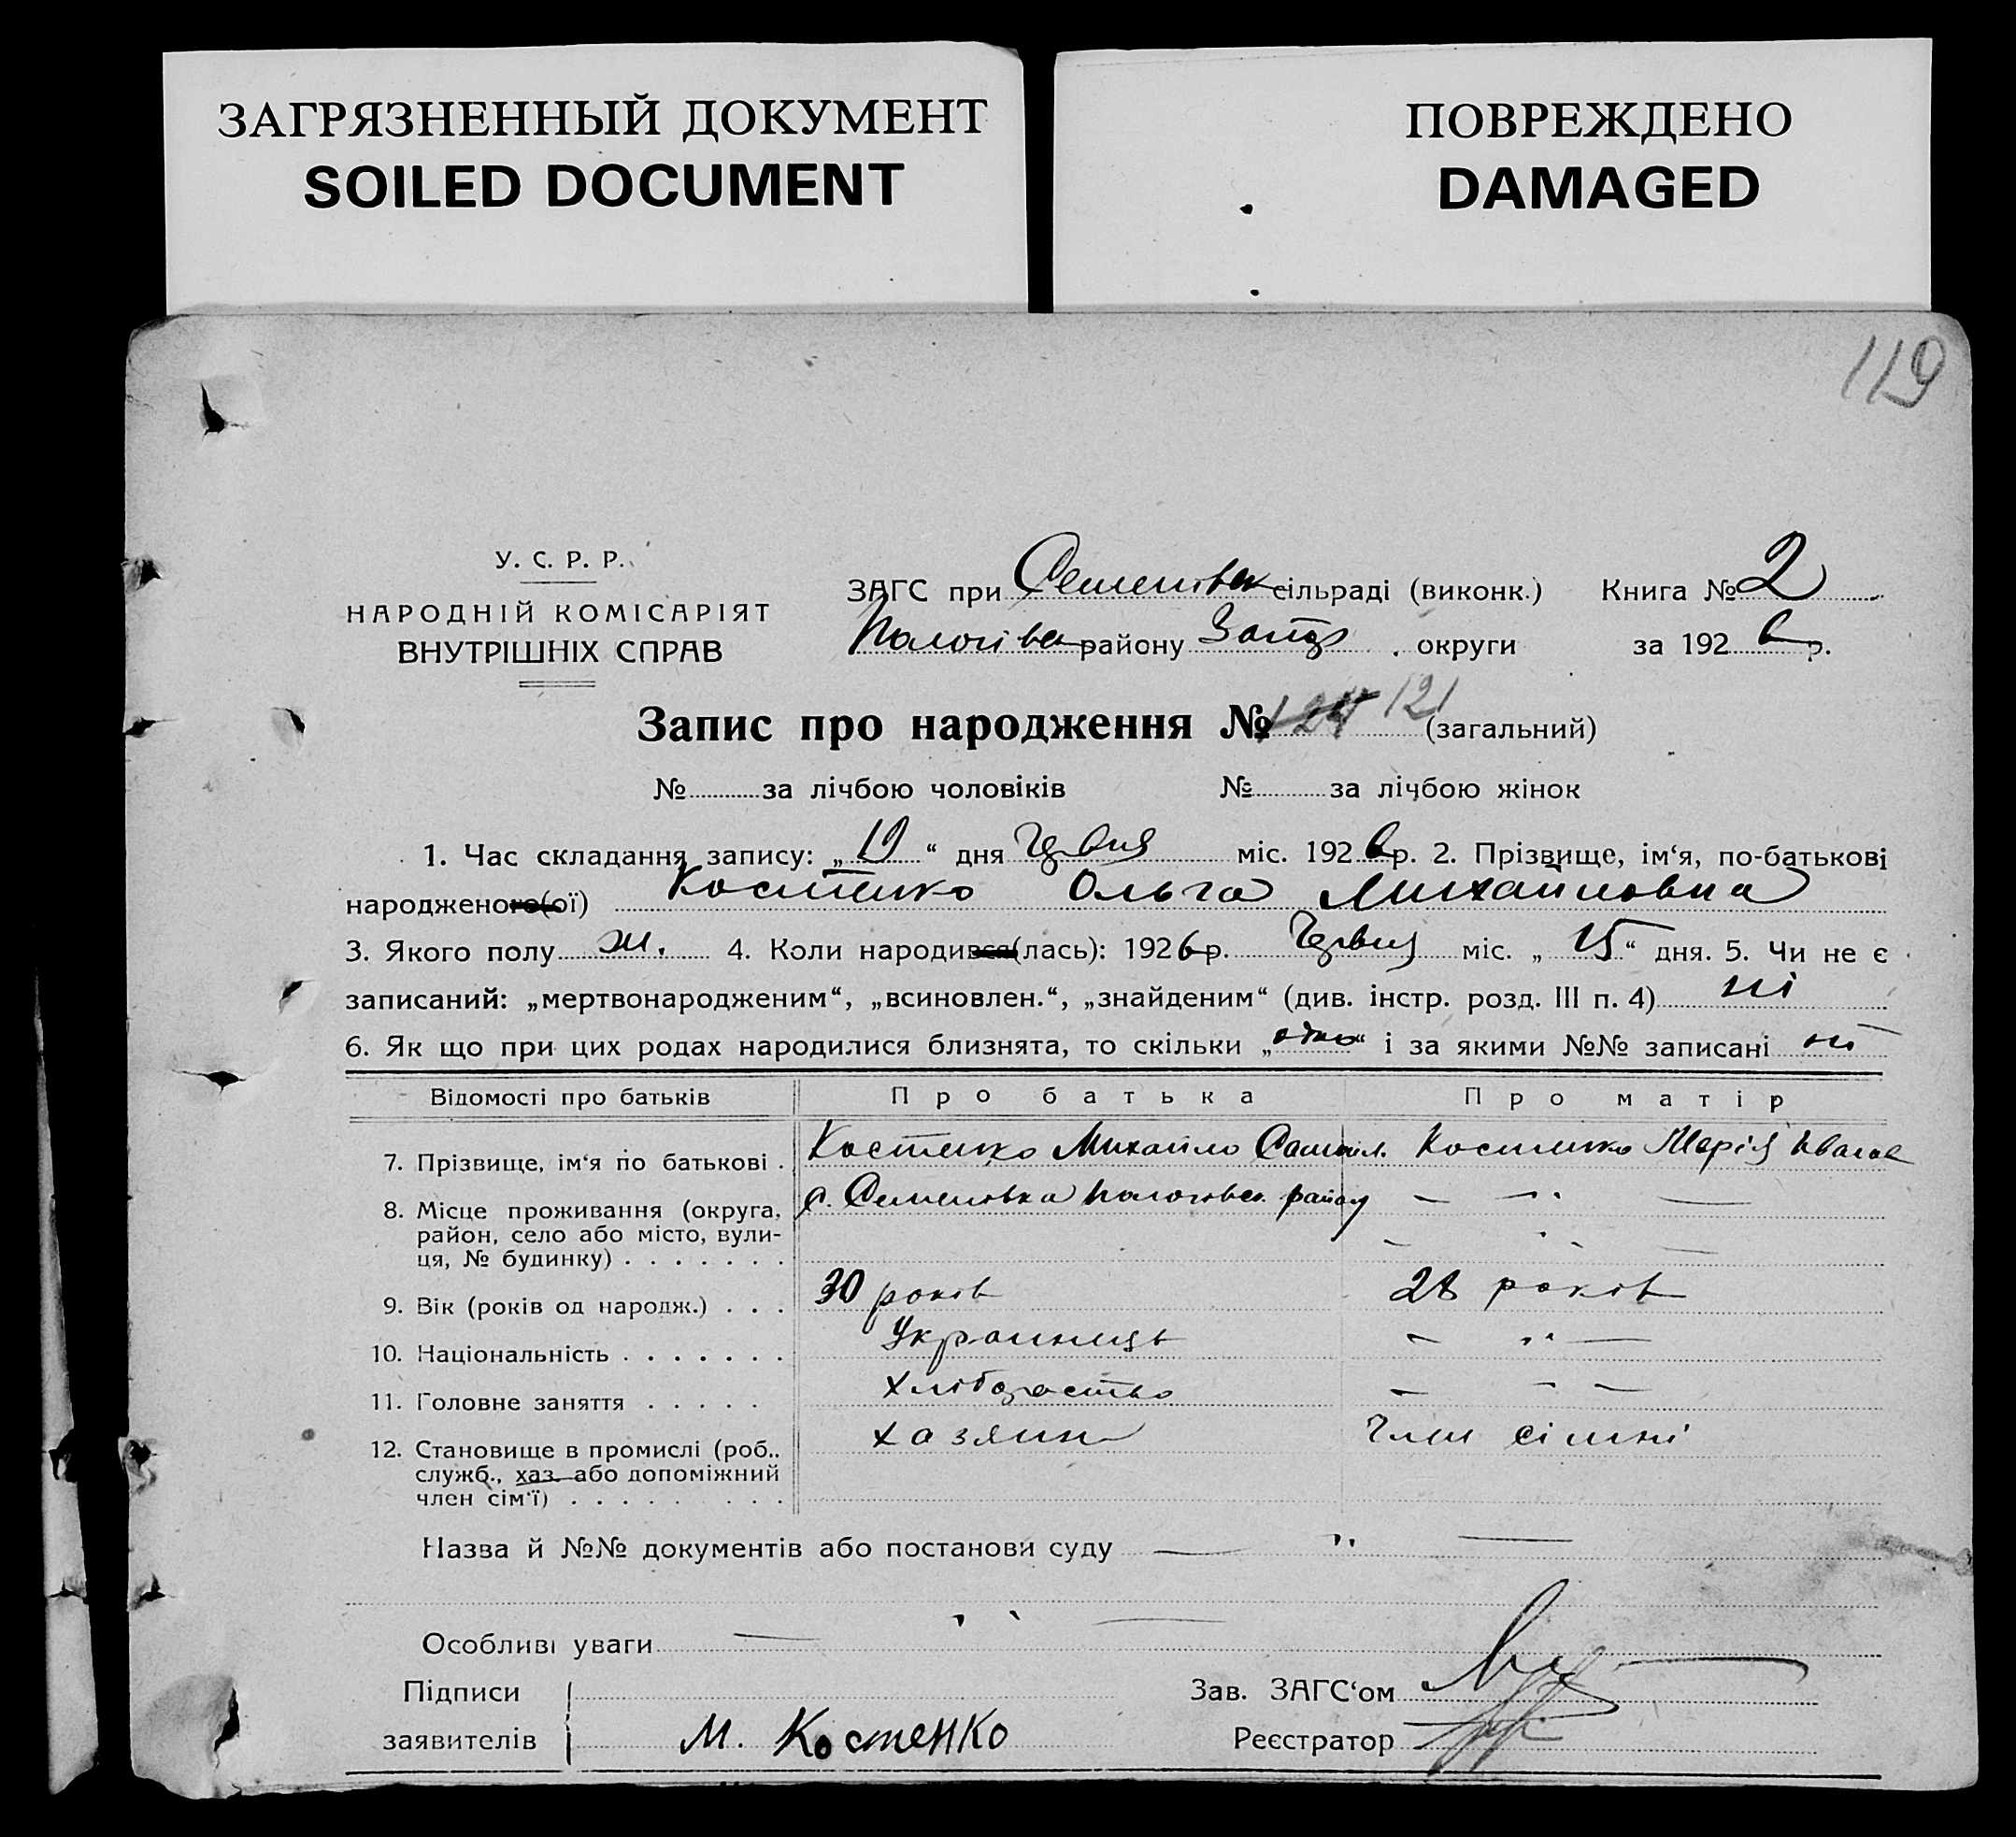 ЗАГРЯЗНЕННЫЙ ДОКУМЕНТ
SOILED DOCUMENT
ПОВРЕЖДЕНО
DAMAGED
119
У. С. Р. Р.
НАРОДНІЙ КОМІСАРІЯТ
ВНУТРІШНІХ СПРАВ
ЗАГС при Семенівськ сільраді (виконк.) Книга № 2
Пологівськ району Запор. округи за 1926 р.
Запис про народження № 124 121 (загальний)
№ за лічбою чоловіків № за лічбою жінок
1. Час складання запису: „19“ дня Червня міс. 1926 р. 2. Прізвище, ім‘я, по-батькові
народженого(ої) Костенко Ольга Михайловна
3. Якого полу ж. 4. Коли народився(лась): 1926 р. Червня міс. „15“ дня. 5. Чи не є
записаний: „мертвонародженим“, „всиновлен.“, „знайденим“ (див. інстр. розд. III п. 4) ні
6. Як що при цих родах народилися близнята, то скільки „одно“ і за якими №№ записані ні
Відомості про батьків Про батька Про матір
7. Прізвище, ім‘я по батькові . Костенко Михайло Самойл. Костенко Марія Іванов
8. Місце проживання (округа, район, село або місто, вулиця, № будинку) . . . . . . . с. Семеновка Пологовск. район — „ —
9. Вік (років од народж.) . . . 30 років 28 років
10. Національність . . . . . . . Українець — „ —
11. Головне заняття . . . . . хліборобство — „ —
12. Становище в промислі (роб., служб., хаз. або допоміжний член сім‘ї) . . . . . . . . . хазяин Член сімні
Назва й №№ документів або постанови суду — „ —
Особливі уваги — „ —
Підписи Зав. ЗАГС‘ом
заявителів М. Костенко Реєстратор